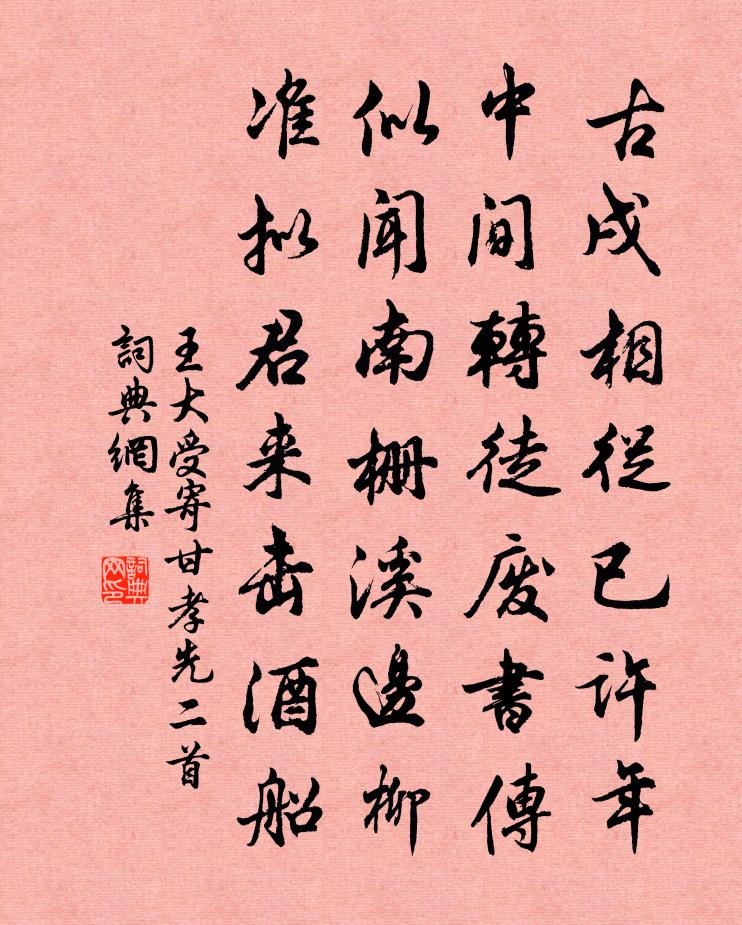 古戍相從已許年
中間轉徒废書傳
似闻南栅溪邊柳
准拟君来击酒船
王大受寄甘孝先二首
詞典網集
詞典网印